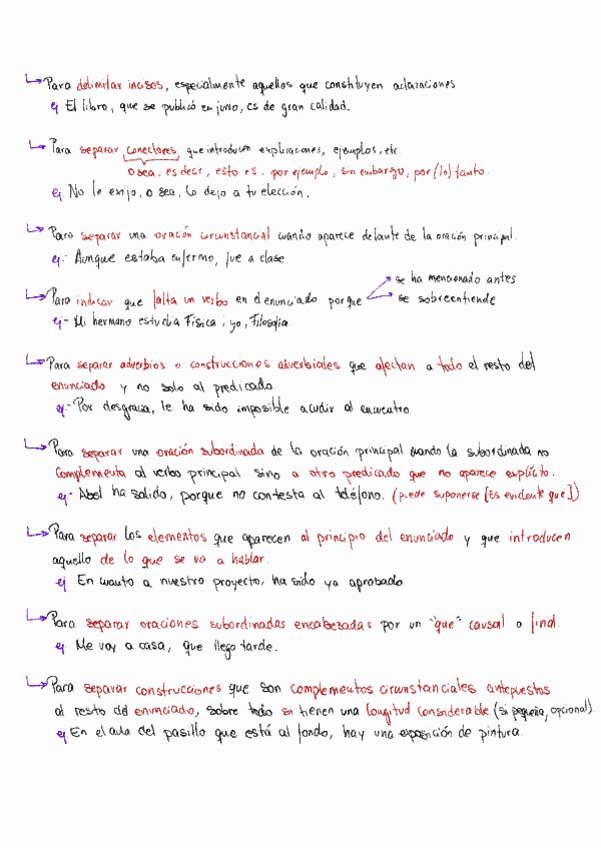 ↳ Para delimitar incisos, especialmente aquellos que constituyen aclaraciones
ej El libro, que se publicó en junio, es de gran calidad.
↳ Para separar conectores que introducen explicaciones, ejemplos, etc
o sea, es decir, esto es, por ejemplo, sin embargo, por (lo) tanto.
ej. No lo exijo, o sea, lo dejo a tu elección.
↳ Para separar una oración circunstancial cuando aparece delante de la oración principal.
ej.- Aunque estaba enfermo, fue a clase
↳ Para indicar que falta un verbo en el enunciado porque
se ha mencionado antes
se sobreentiende
ej- Mi hermano estudia Física; yo, Filosofía
↳ Para separar adverbios o construcciones adverbiales que afectan a todo el resto del
enunciado y no solo al predicado.
ej.- Por desgracia, le ha sido imposible acudir al encuentro
↳ Para separar una oración subordinada de la oración principal cuando la subordinada no
complementa al verbo principal sino a otro predicado que no aparece explícito.
ej- Abel ha salido, porque no contesta al teléfono. (puede suponerse [Es evidente que])
↳ Para separar los elementos que aparecen al principio del enunciado y que introducen
aquello de lo que se va a hablar.
ej En cuanto a nuestro proyecto, ha sido ya aprobado
↳ Para separar oraciones subordinadas encabezadas por un "que" causal o final.
ej. Me voy a casa, que llego tarde.
↳ Para separar construcciones que son complementos circunstanciales antepuestos
al resto del enunciado, sobre todo si tienen una longitud considerable (si pequeña, opcional).
ej En el aula del pasillo que está al fondo, hay una exposición de pintura.